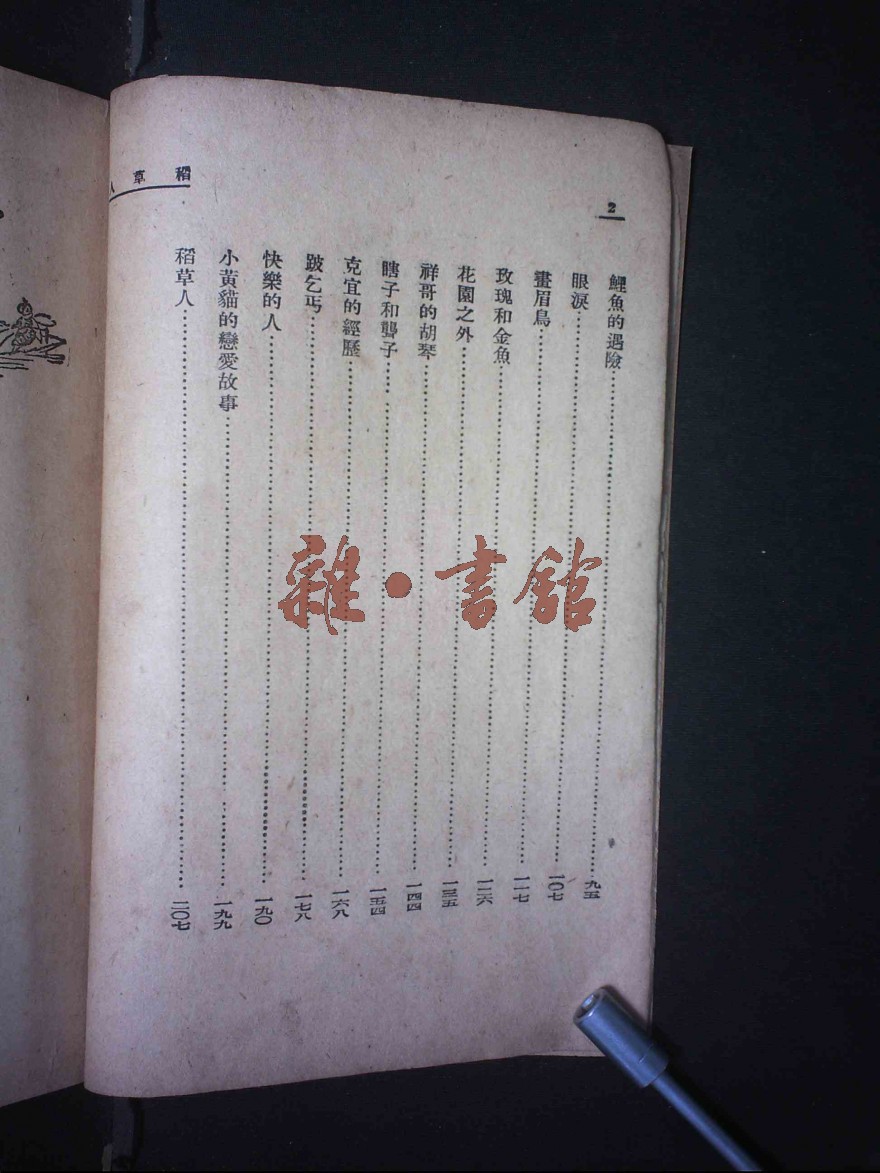 稻草人
2
鯉魚的遇險⋯⋯九五
眼淚⋯⋯一〇七
畫眉鳥⋯⋯一一七
玫瑰和金魚⋯⋯一二六
花園之外⋯⋯一三五
祥哥的胡琴⋯⋯一四四
瞎子和聾子⋯⋯一五四
克宜的經歷⋯⋯一六八
跛乞丐⋯⋯一七八
快樂的人⋯⋯一九〇
小黃貓的戀愛故事⋯⋯一九九
稻草人⋯⋯二〇七
雜·書館